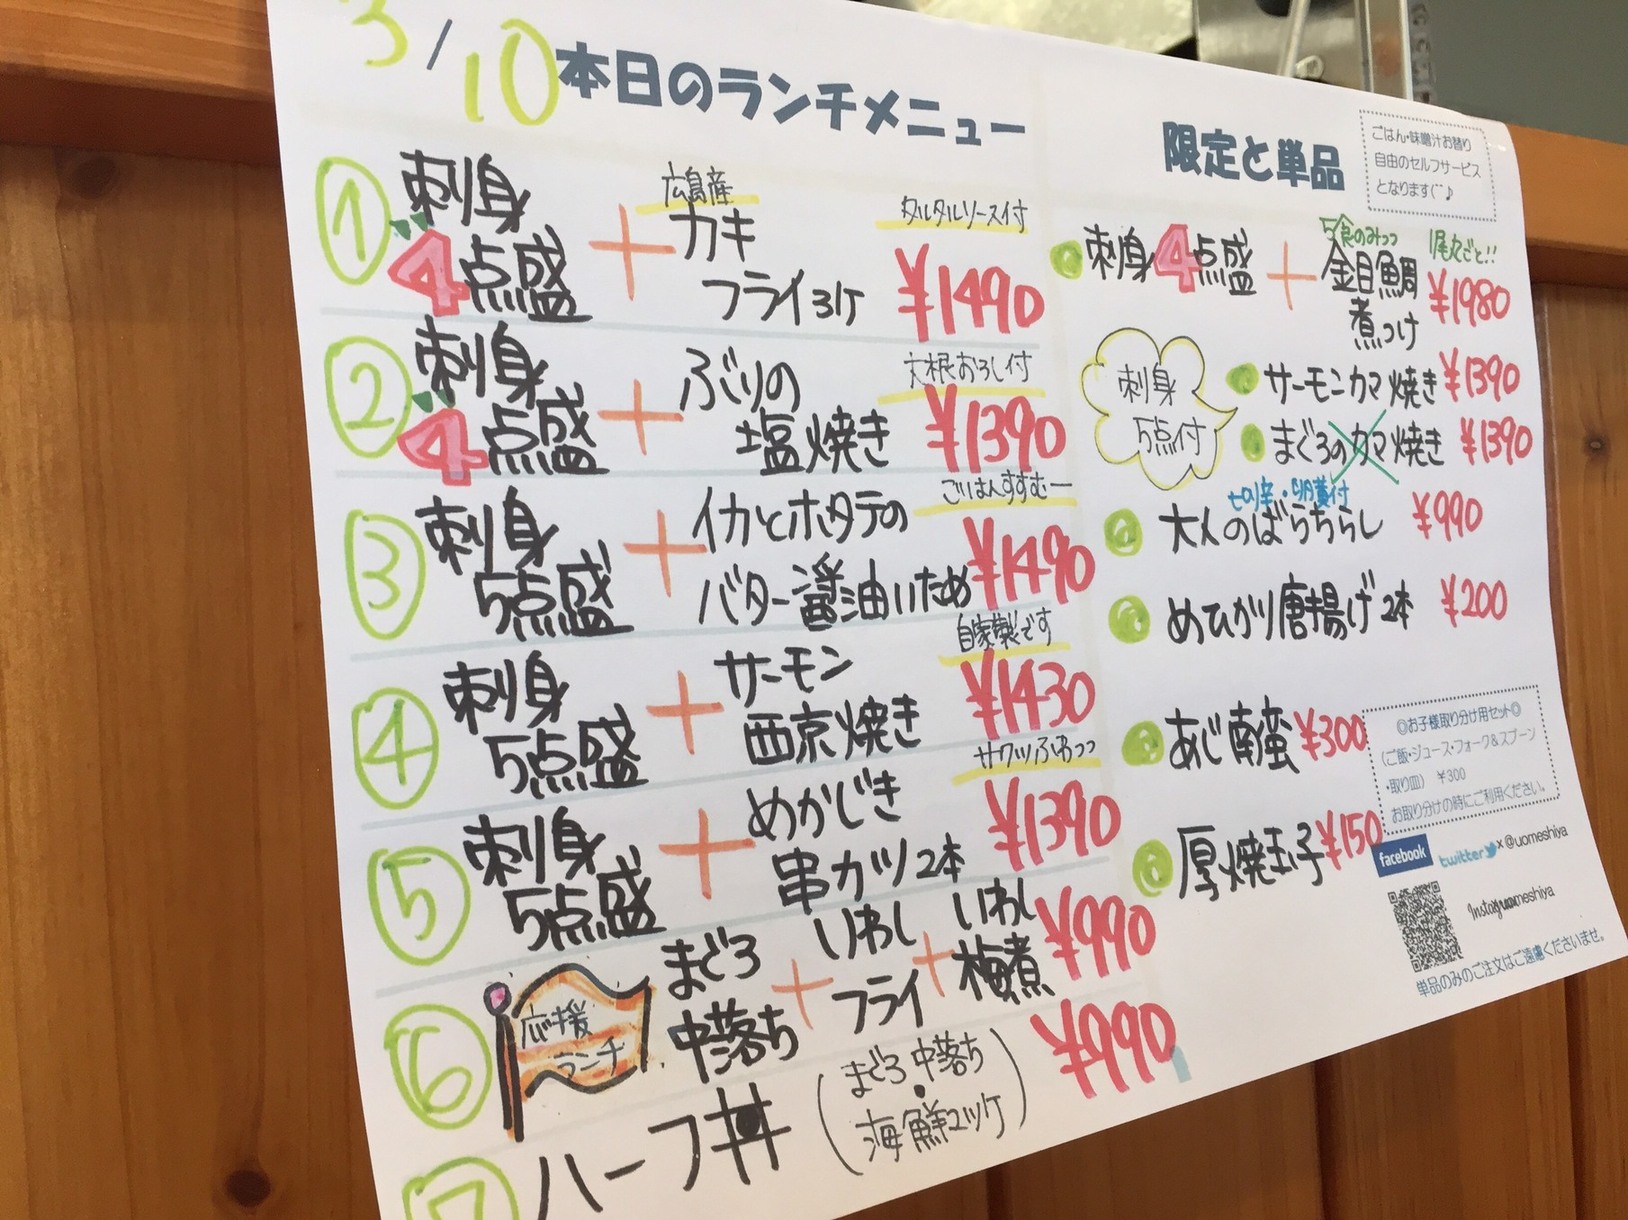 3/10 本日のランチメニュー
① 刺身
4点盛
+
広島産
カキ
フライ3ケ
タルタルソース付
¥1490
② 刺身
4点盛
+
ぶりの
塩焼き
大根おろし付
¥1390
③ 刺身
5点盛
+
イカとホタテの
バター醤油いため
ごはんすすむー
¥1490
④ 刺身
5点盛
+
サーモン
西京焼き
自家製です
¥1430
⑤ 刺身
5点盛
+
めかじき
串カツ2本
サクッふわっっ
¥1390
⑥ 応援
ランチ
まぐろ
中落ち
+
いわし
フライ
+
いわし
梅煮
¥990
⑦ ハーフ丼
(まぐろ中落ち
・
海鮮ユッケ)
¥990
限定と単品
ごはん・味噌汁お替り
自由のセルフサービス
となります(^^♪
刺身4点盛
+
5食のみっっ
金目鯛
煮つけ
1尾丸ごと!!
¥1980
刺身
5点付
サーモンカマ焼き ¥1390
まぐろのカマ焼き ¥1390
大人のばらちらし ¥990
めひかり唐揚げ2本 ¥200
あじ南蛮 ¥300
厚焼玉子 ¥150
◎お子様取り分け用セット◎
(ご飯・ジュース・フォーク&スプーン
・取り皿) ¥300
お取り分けの時にご利用ください。
facebook twitter × @uomeshiya
単品のみのご注文はご遠慮くださいませ。